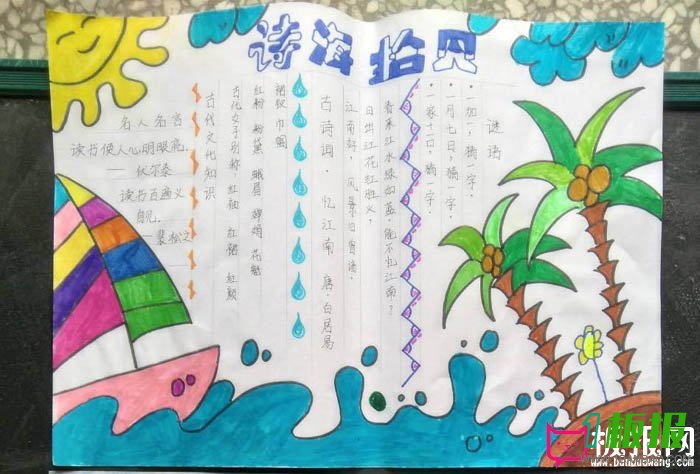 诗海拾贝
谜语
·一加一，猜一字。
·一月七日，猜一字。
·一家十一口，猜一字。
古诗词·忆江南 唐·白居易
江南好，风景旧曾谙。
日出江花红胜火，
春来江水绿如蓝，能不忆江南？
古代文化知识
古代女子别称：红袖 红裙 红颜
红粉 粉黛 蛾眉 婵娟 花魁
裙钗 巾帼
名人名言
读书使人心明眼亮。
——伏尔泰
读书百遍义
自见。
——裴松之
板报
板报网
www.banbaowang.com